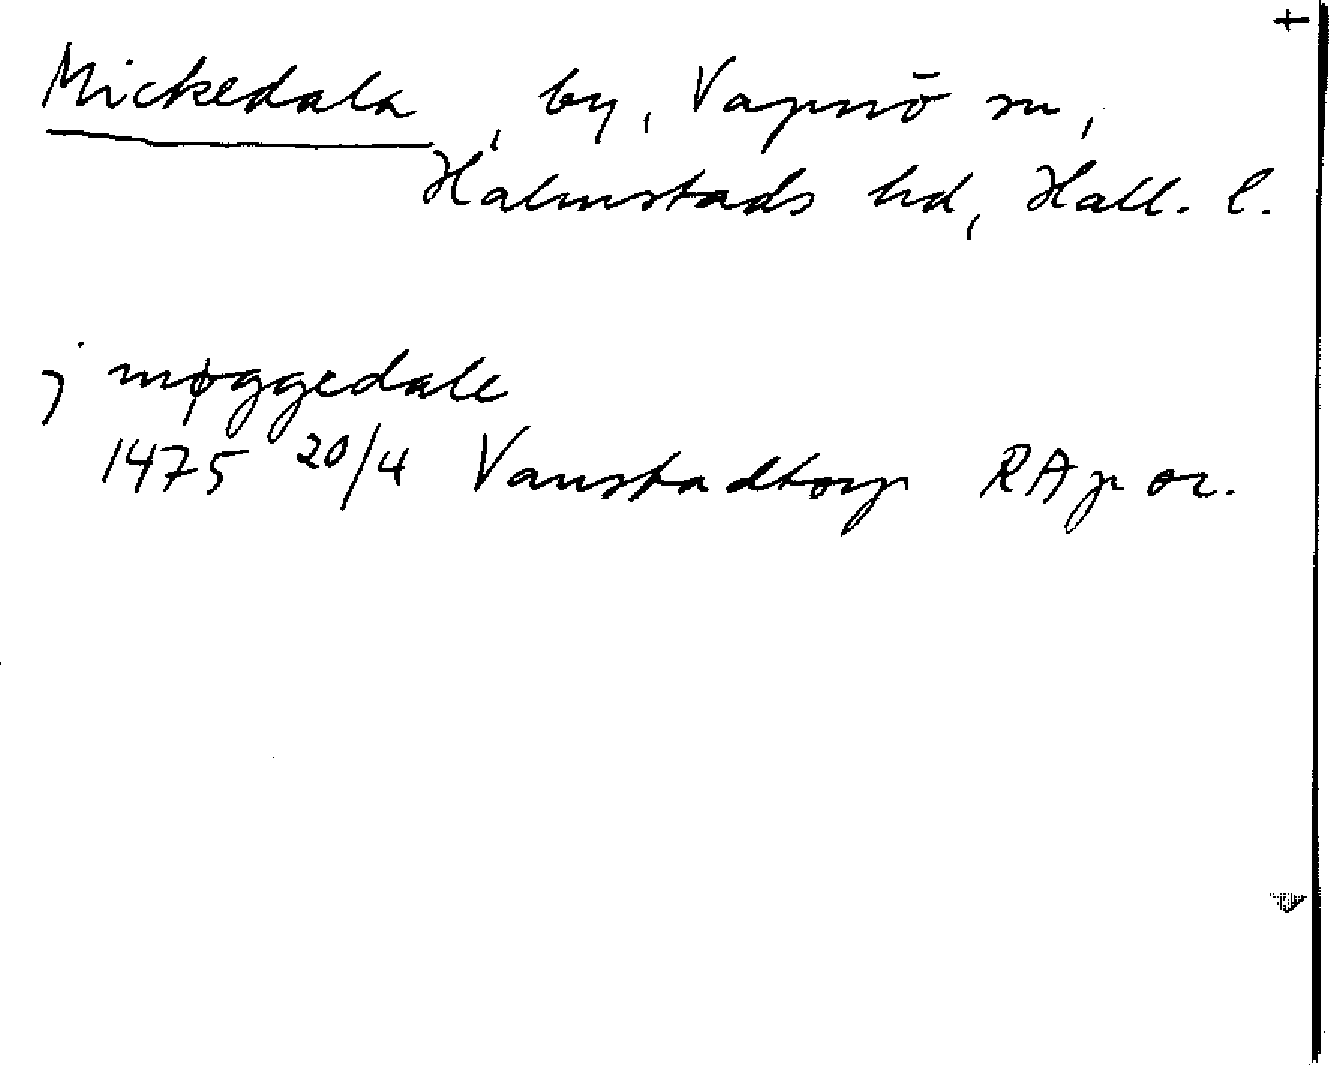 Mickedala, by, Vapnö sn,
Halmstads hd, Hall. l.
j møggedale
1475 20/4 Vanstadtorp RAp or.